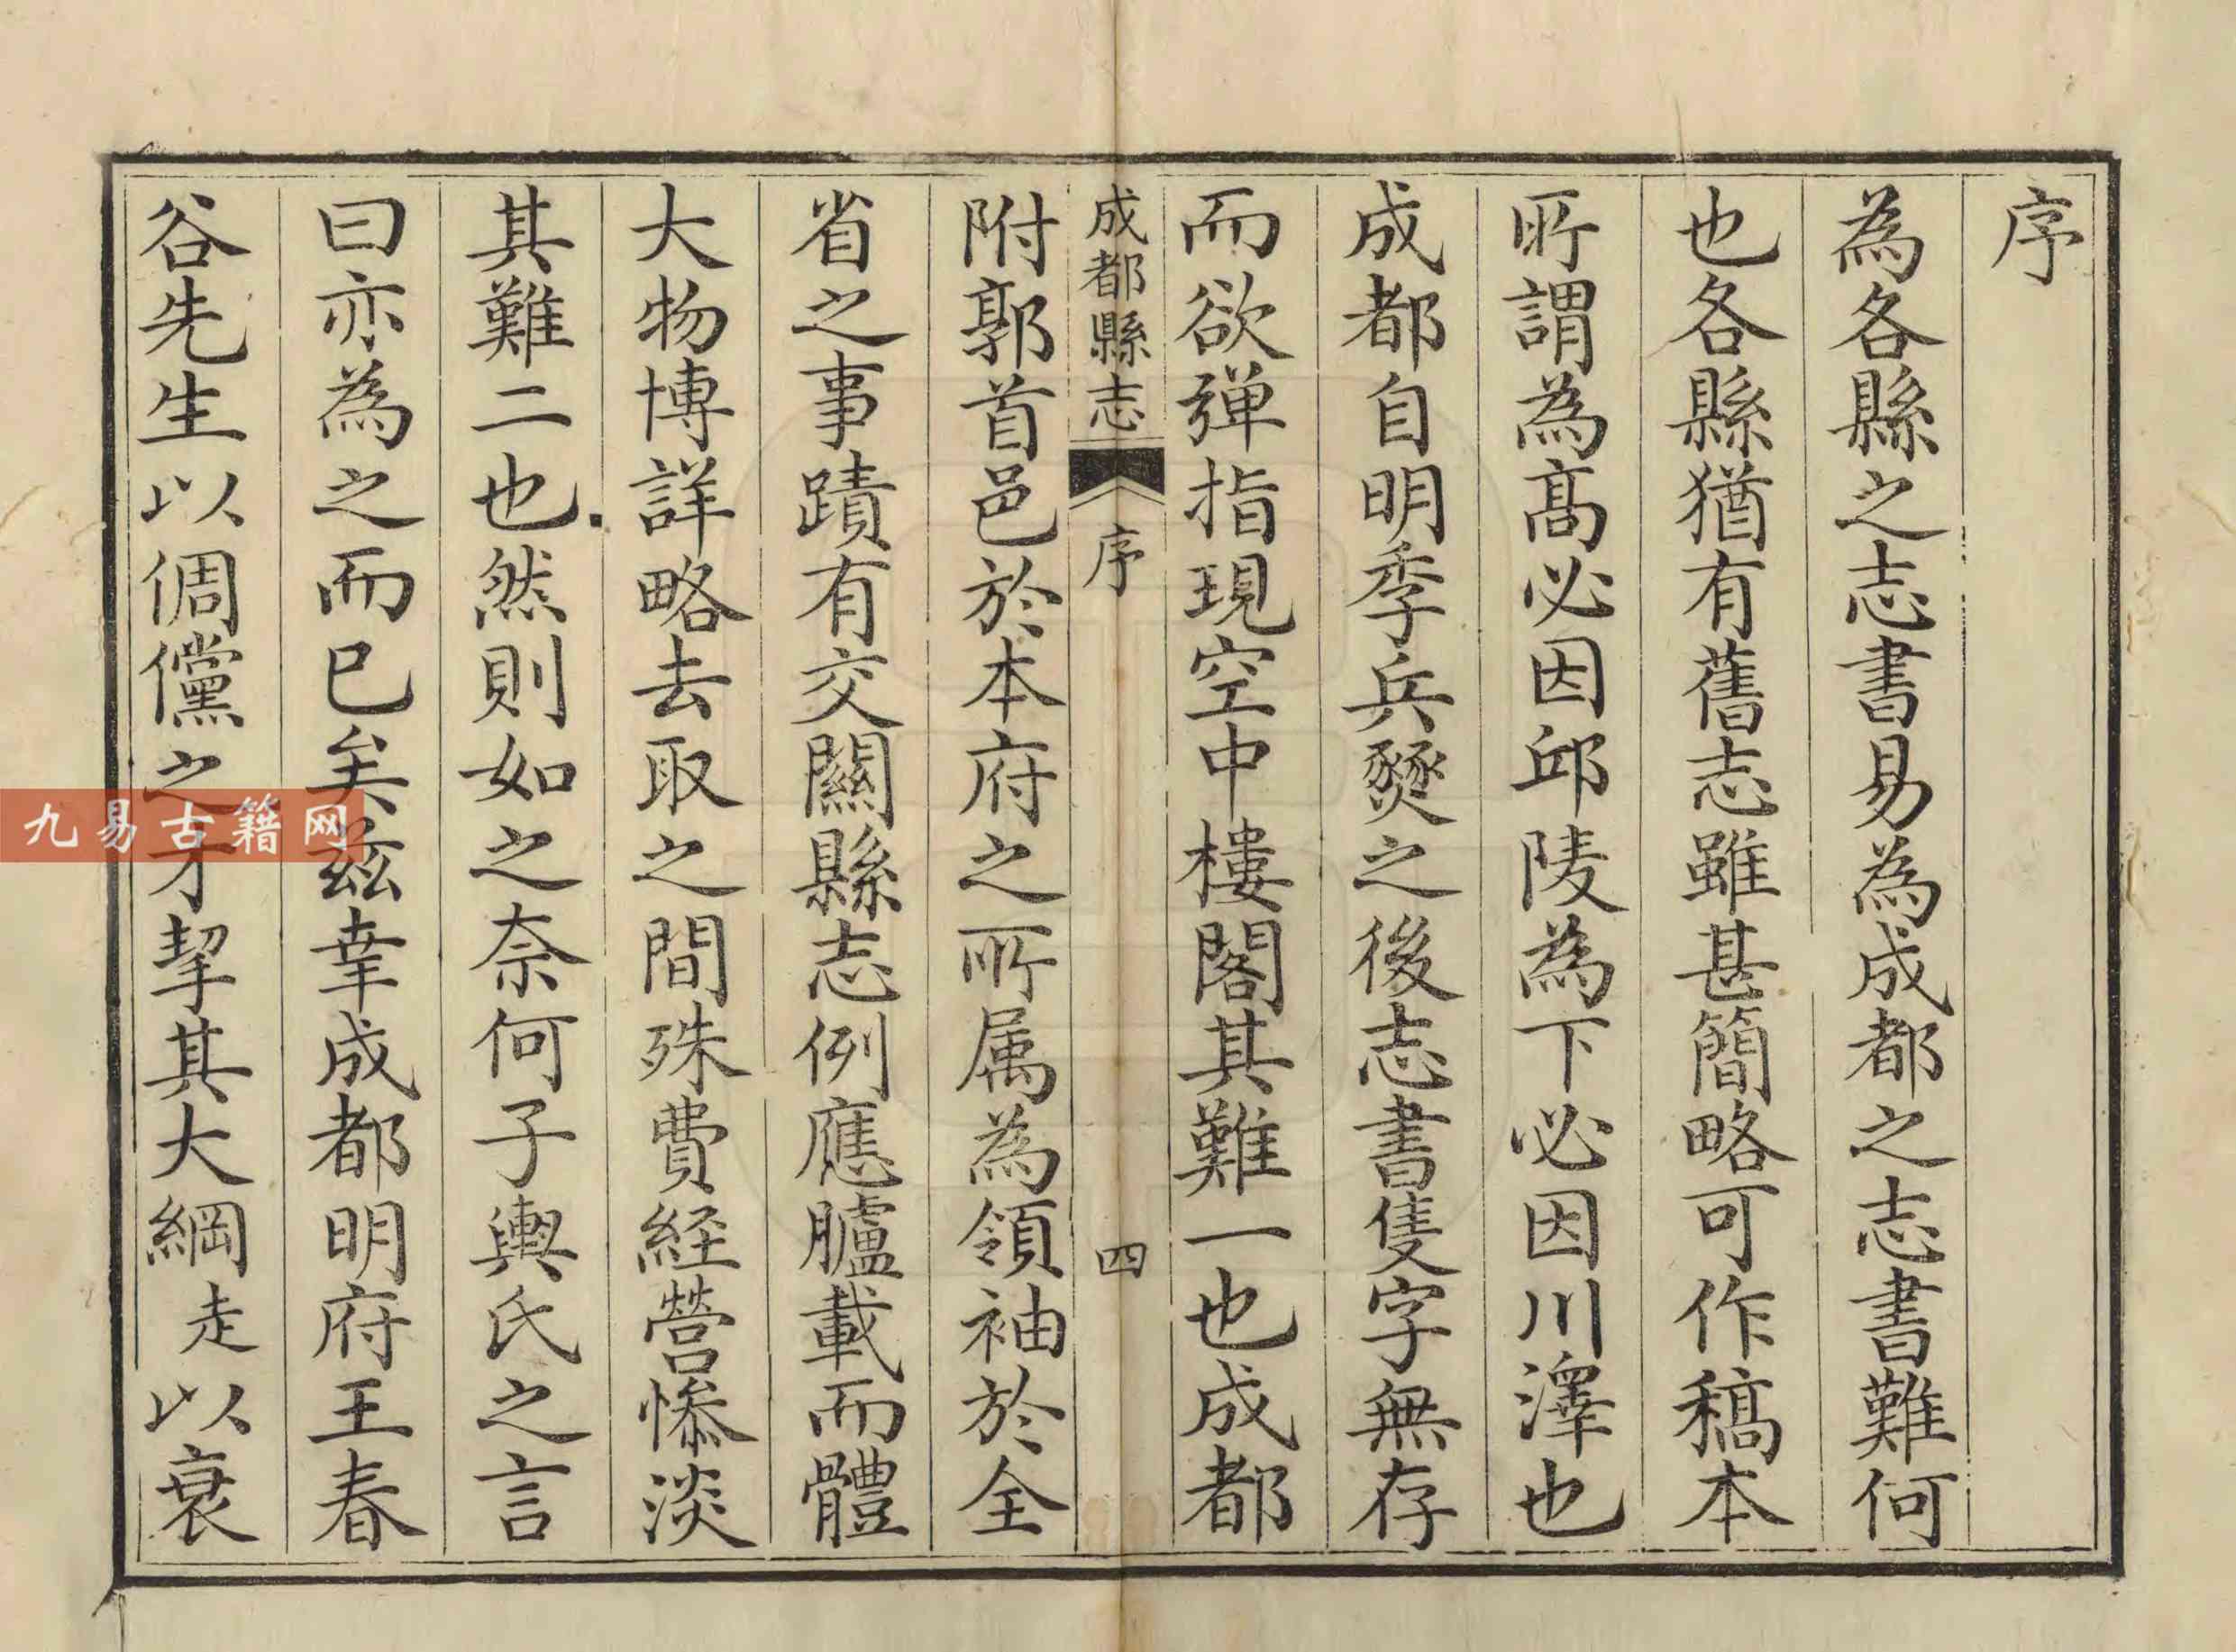 序
為各縣之志書易為成都之志書難何
也各縣猶有舊志雖甚簡略可作稿本
所謂為髙必因邱陵為下必因川澤也
成都自明季兵燹之後志書隻字無存
而欲弹指現空中樓閣其難一也成都
成都縣志 序 四
附郭首邑於本府之所属為領袖於全
省之事蹟有交關縣志例應臚載而體
大物博詳略去取之間殊費経營惨淡
其難二也然則如之奈何子輿氏之言
曰亦為之而已矣兹幸成都明府王春
谷先生以倜儻之才挈其大綱走以衰
九易古籍网